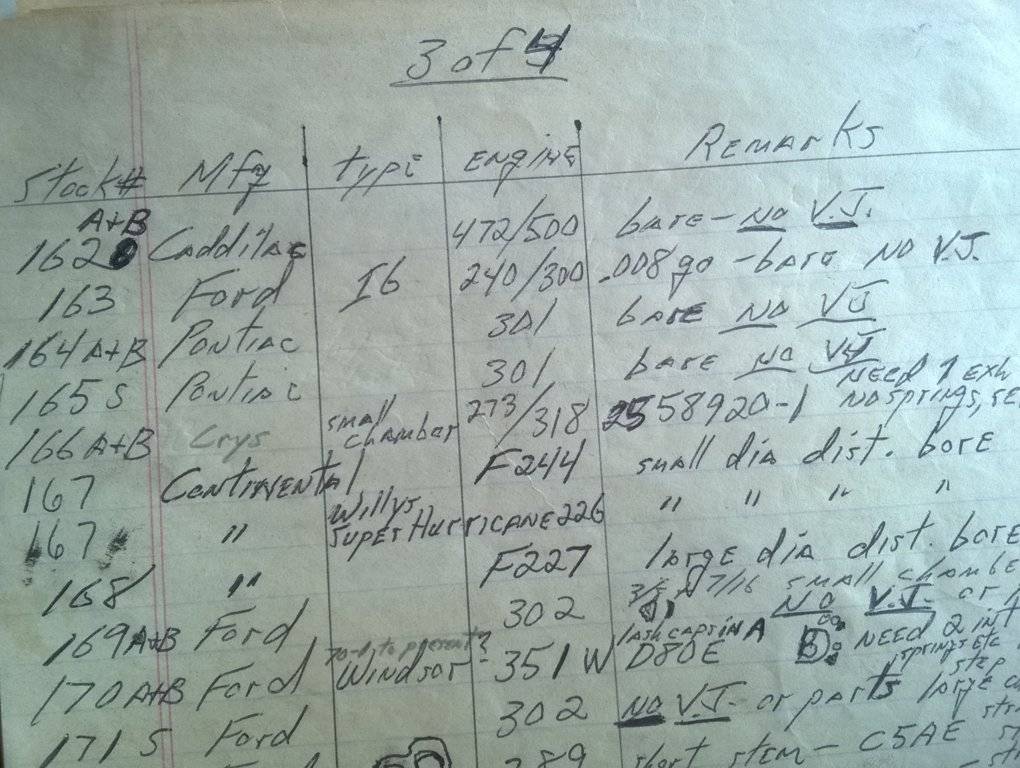 3 of 4
Stock# Mfg type ENGINE REMARKS
162 A+B Caddilac 472/500 bare - NO V.J.
163 Ford I6 240/300 .008 go - bare NO V.J.
164 A+B Pontiac 301 bare NO VJ
165 S Pontiac 301 bare NO VJ NEED 1 Exh
166 A+B Crys small chamber 273/318 2558920-1 NO SPRINGS,
167 Continental F244 small dia dist. bore
167 " Willys Super Hurricane 226 " " " "
168 " F227 large dia dist. bore
169 A+B Ford 302 7/16 small chambe NO V.J. or
170 A+B Ford 70-1 to present? Windsor 351 W lash caps in A D80E B: NEED 2 int springs etc
171 S Ford 302 NO V.J. or parts large step
289 short stem - C5AE